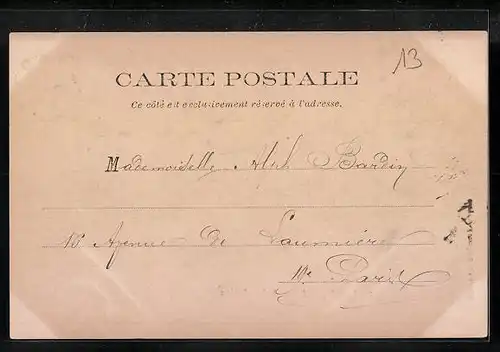 13
CARTE POSTALE
Ce côté est exclusivement réservé à l'adresse.
Mademoiselle Bardin
Avenue de Laumière
Paris